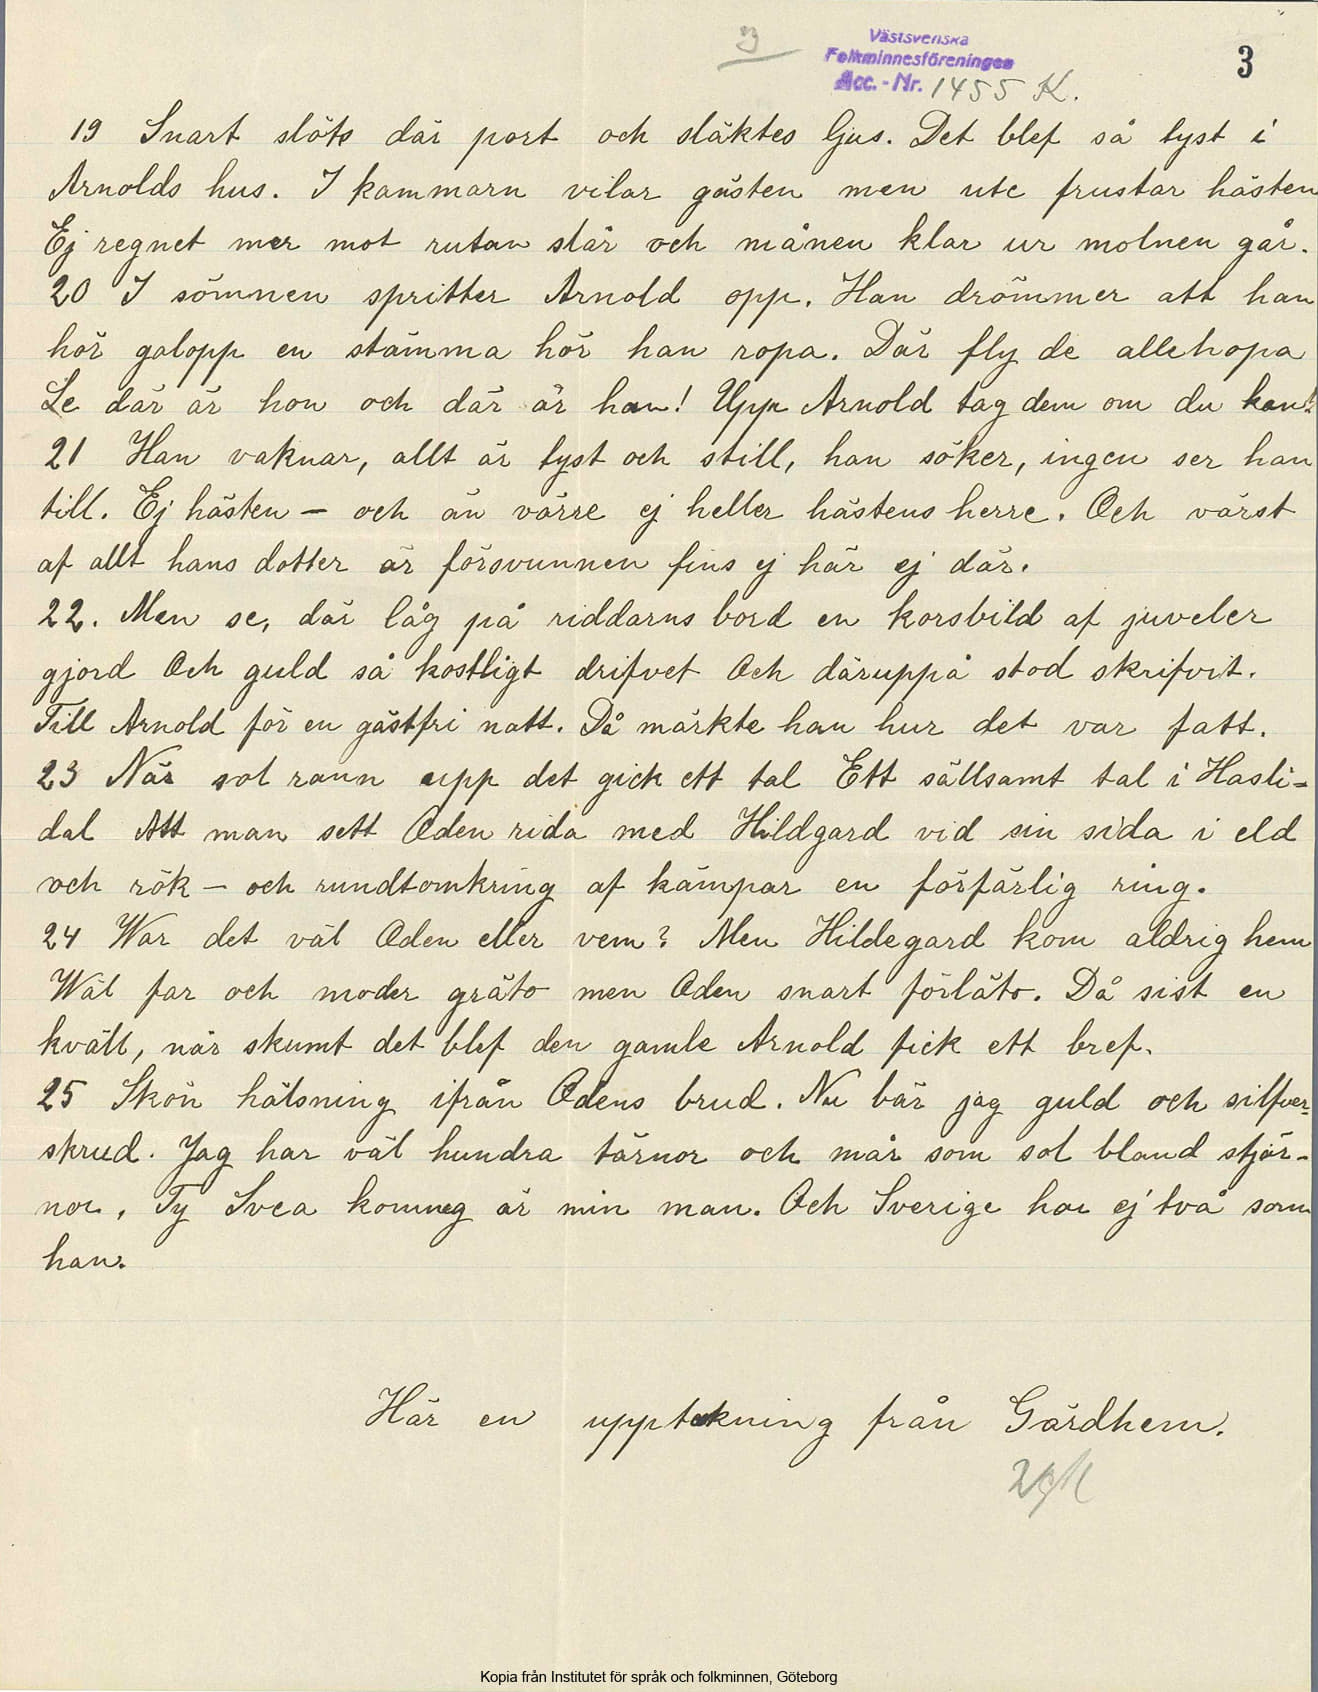 Västsvenska
Folkminnesföreningen
Acc.-Nr. 1455 K.
3
19 Snart slöts där port och släktes ljus. Det blef så tyst i
Arnolds hus. I kammarn vilar gästen men ute frustar hästen
Ej regnet mer mot rutan slår och månen klar ur molnen går.
20 I sömnen spritter Arnold opp. Han drömmer att han
hör galopp en stämma hör han ropa. Där fly de allehopa
Se där är hon och där är han! Upp Arnold tag dem om du kan!
21 Han vaknar, allt är tyst och still, han söker, ingen ser han
till. Ej hästen – och än värre ej heller hästens herre. Och värst
af allt hans dotter är försvunnen fins ej här ej där.
22. Men se, där låg på riddarns bord en korsbild af juveler
gjord Och guld så kostligt drifvet Och däruppå stod skrifvit.
Till Arnold för en gästfri natt. Då märkte han hur det var fatt.
23 När sol rann upp det gick ett tal Ett sällsamt tal i Hasli-
dal Att man sett Oden rida med Hildgard vid sin sida i eld
och rök – och rundtomkring af kämpar en förfärlig ring.
24 War det väl Oden eller vem? Men Hildegard kom aldrig hem
Wäl far och moder gräto men Oden snart förläto. Då sist en
kväll, när skumt det blef den gamle Arnold fick ett bref.
25 Skön hälsning ifrån Odens brud. Nu bär jag guld och silfver-
skrud. Jag har väl hundra tärnor och mår som sol bland stjär-
nor, Ty Svea konung är min man. Och Sverige har ej två som
han.
Här en uppteckning från Gärdhem.
Kopia från Institutet för språk och folkminnen, Göteborg